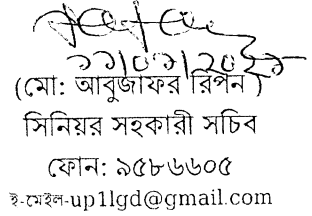 (মো: আবুজাফর রিপন )
সিনিয়র সহকারী সচিব
ফোন: ৯৫৮৬৬০৫
ই-মেইল-up1lgd@gmail.com